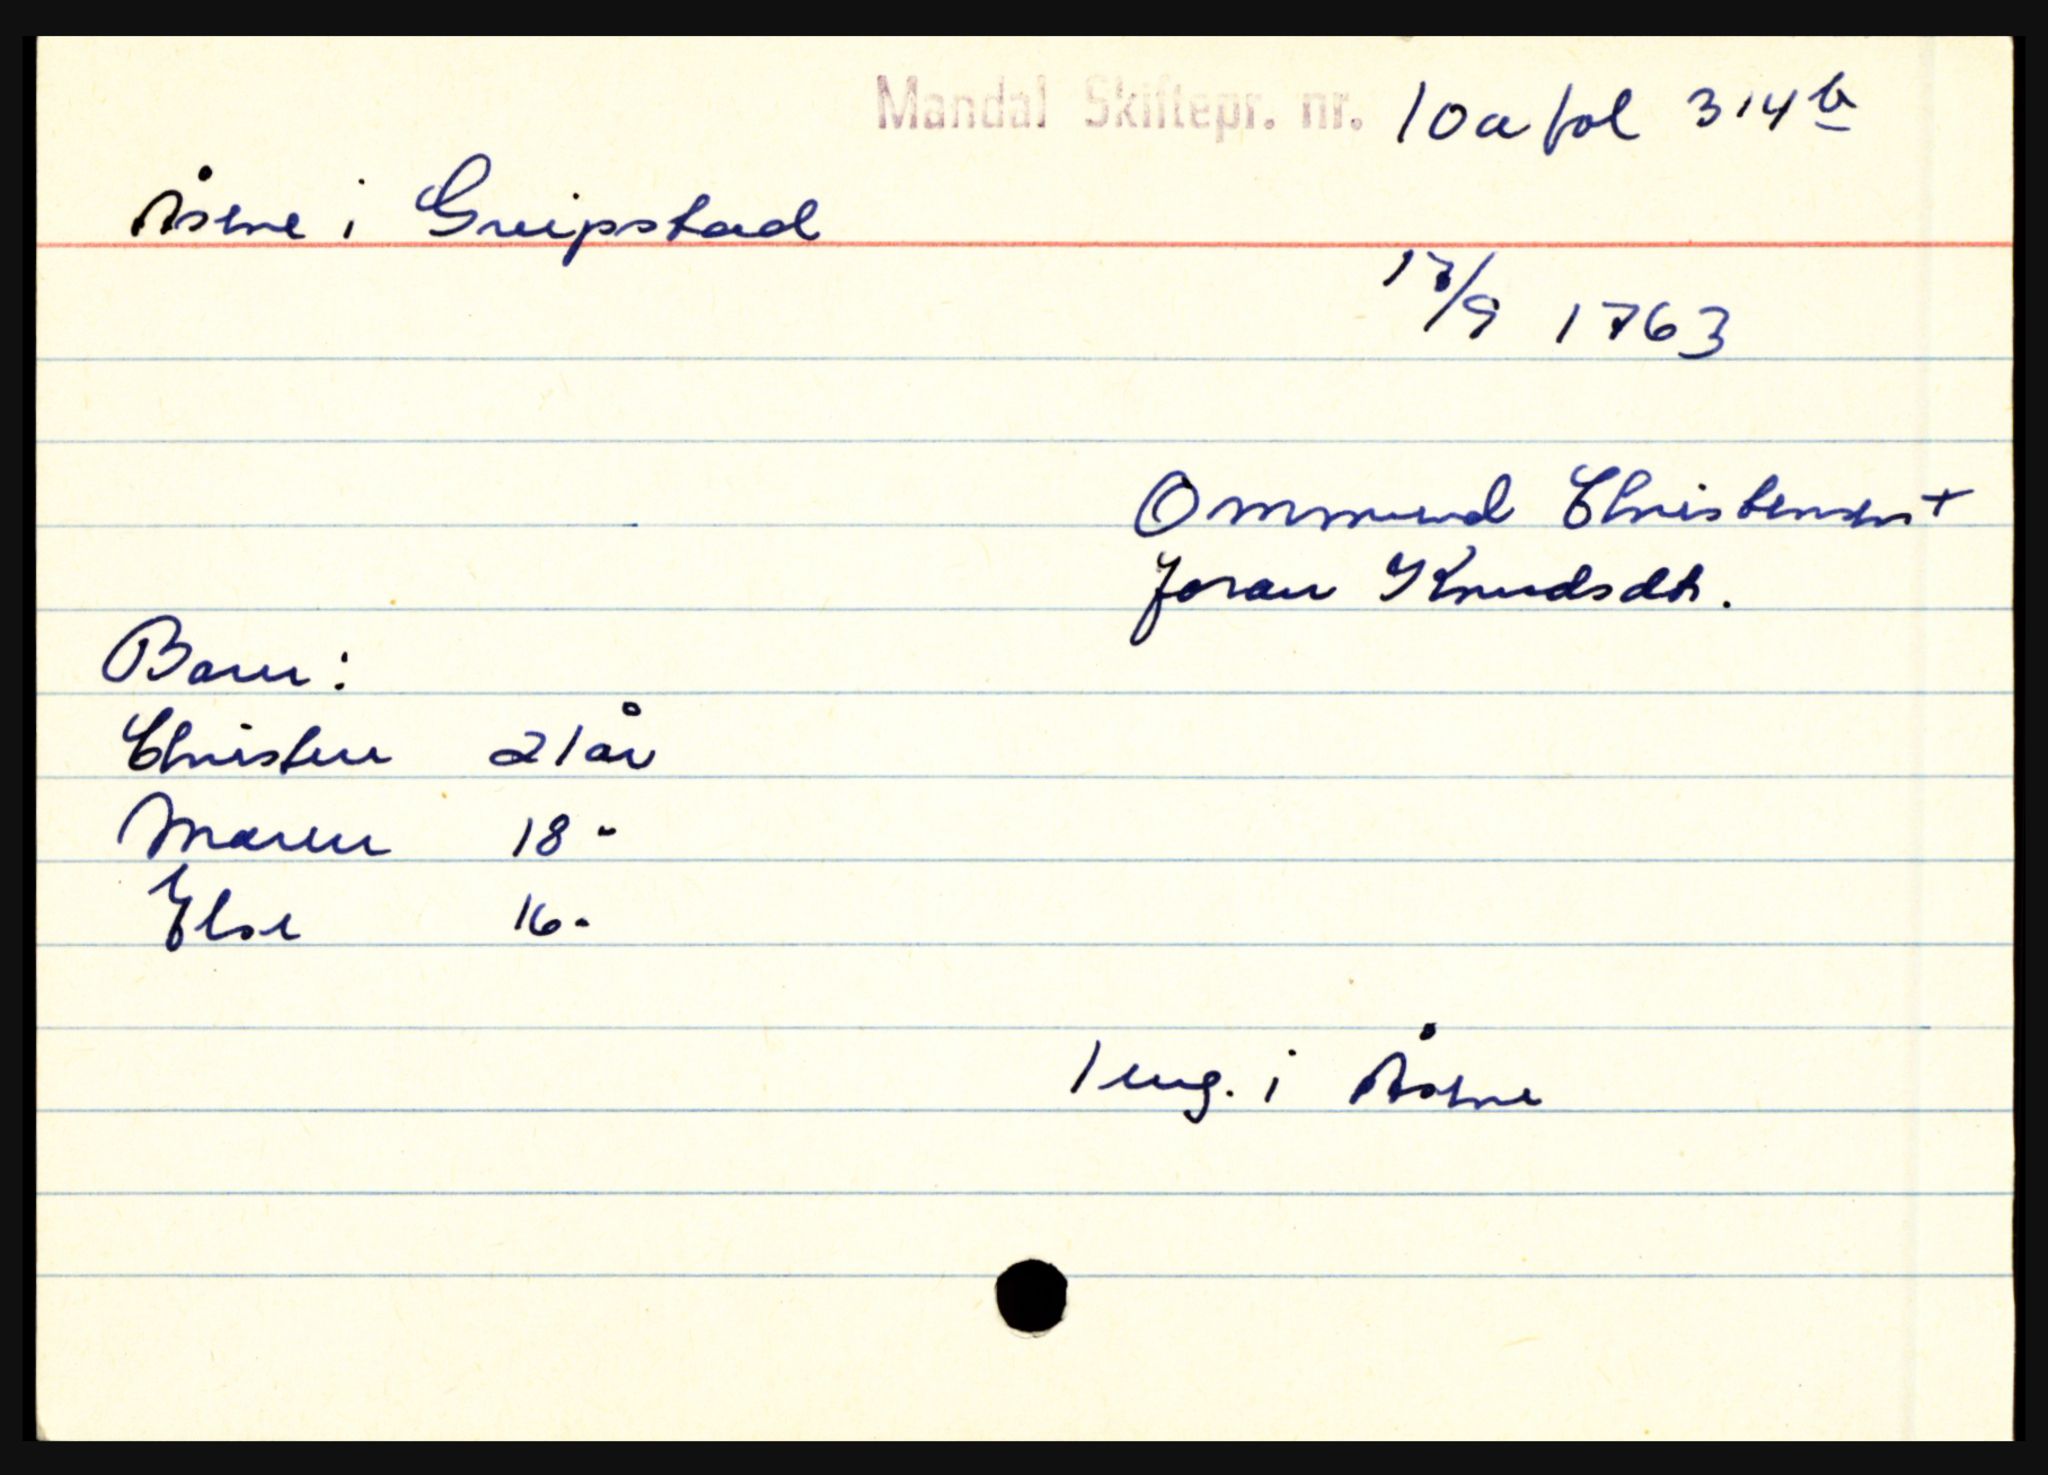 Mandal Skiftepr. nr. 10a fol 314 b
Åsene i Greipstad
17/9 1763
Ommund Christensen +
Joran Knudsdtr.
Barn:
Christen 21 år
Maren 18 -
Else 16 -
1 eng. i Åsene